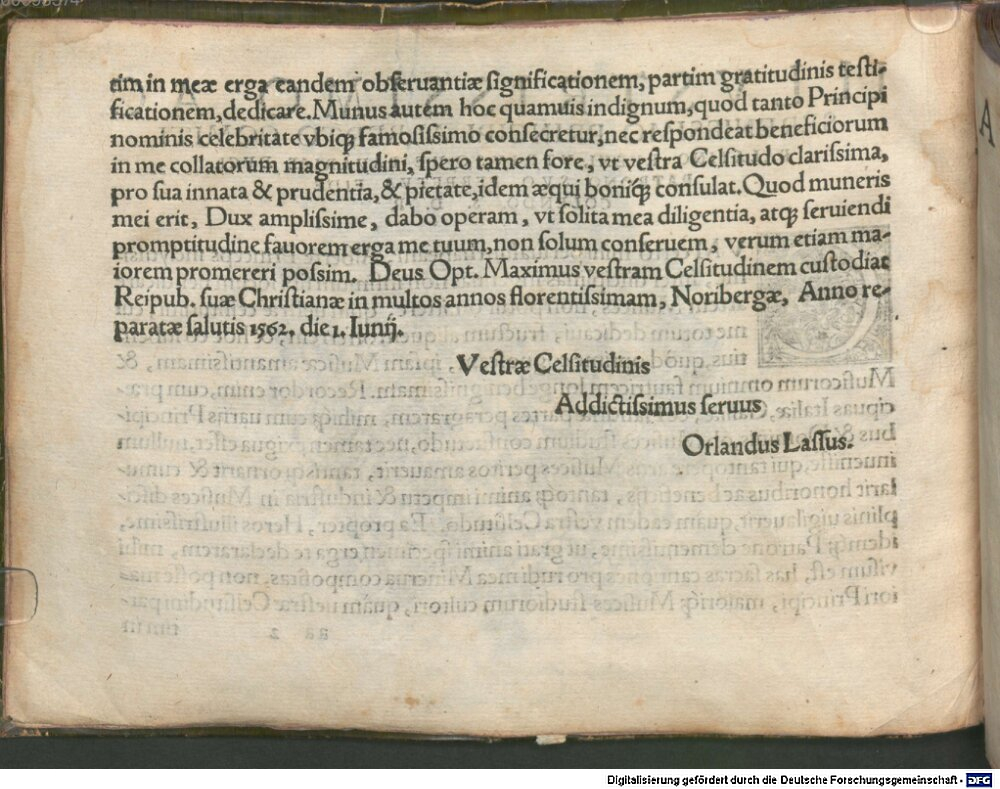 tim in meæ erga eandem obſeruantiæ ſignificationem, partim gratitudinis teſti-
ficationem, dedicare. Munus autem hoc quamuis indignum, quod tanto Principi
nominis celebritate vbiqꝫ famoſiſsimo conſecretur, nec reſpondeat beneficiorum
in me collatorum magnitudini, ſpero tamen fore, vt veſtra Celſitudo clariſsima,
pro ſua innata & prudentia, & pietate, idem æqui boniq́ꝫ conſulat. Quod muneris
mei erit, Dux ampliſsime, dabo operam, vt ſolita mea diligentia, atqꝫ ſeruiendi
promptitudine fauorem erga me tuum, non ſolum conſeruem, verum etiam ma-
iorem promereri poſsim. Deus Opt. Maximus veſtram Celſitudinem cuſtodiat
Reipub. ſuæ Chriſtianæ in multos annos florentiſsimam, Noribergæ, Anno re-
paratæ ſalutis 1562. die 1. Iunij.
Veſtræ Celſitudinis
Addictiſsimus ſeruus
Orlandus Laſſus.
Digitalisierung gefördert durch die Deutsche Forschungsgemeinschaft - DFG